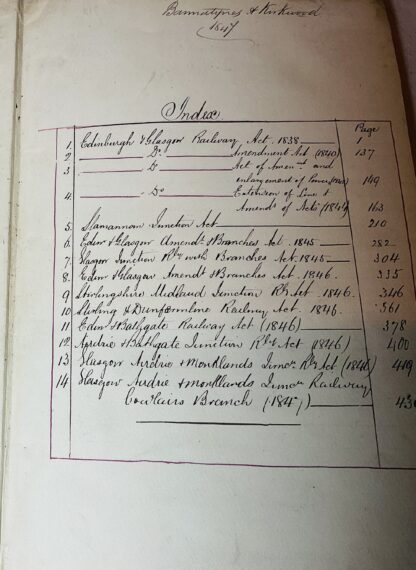 Bannatynes & Kirkwood
1847
Index
Page
1. Edinburgh & Glasgow Railway Act. 1838 1
2 Do Amendment Act (1840) 137
3 Do Act of Amenmt and
enlargement of 149
4. Do Extension of Line &
Amendt of Acts (1844) 163
5. Slamannan Junction Act 210
6. Edinr & Glasgow Amendt & Branches Act. 1845 282
7. Glasgow Junction Rly with Branches Act. 1845 304
8. Edinr & Glasgow Amendt & Branches Act 1846. 335
9 Stirlingshire Midland Junction Rly Act. 1846. 346
10 Stirling & Dunfermline Railway Act. 1846. 361
11 Edinr & Bathgate Railway Act (1846) 378
12 Airdrie & Bathgate Junction Rly Act (1846) 400
13 Glasgow Airdrie & Monklands Juncn Rly Act (1846) 419
14 Glasgow Airdrie & Monklands Juncn Railway
Cowlairs Branch (1847) 43